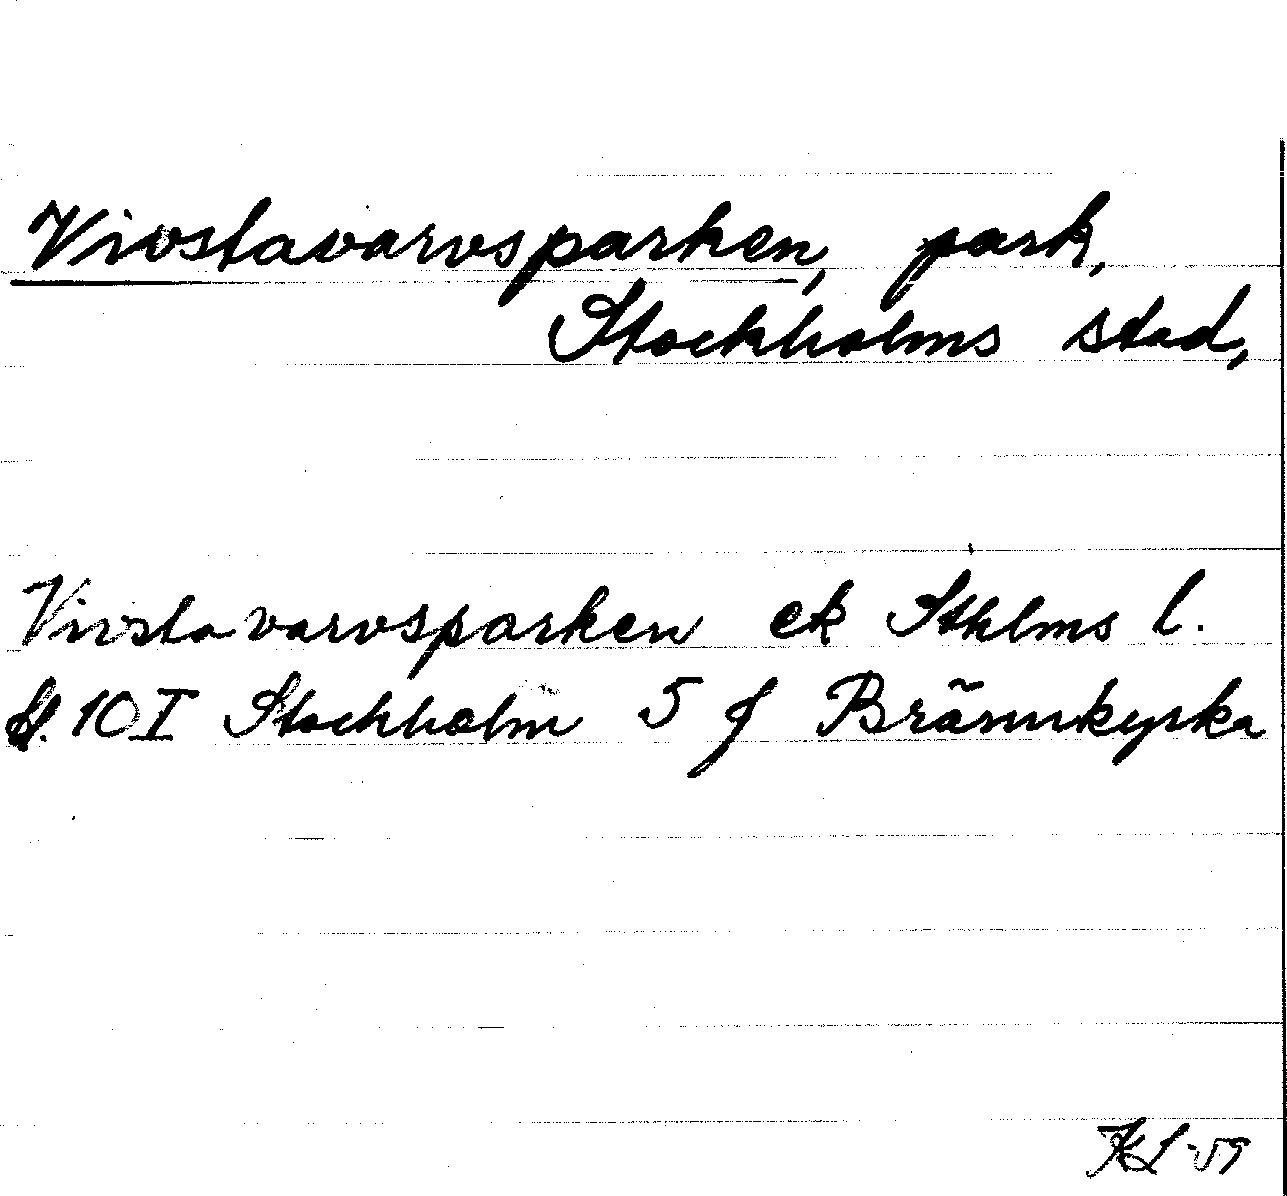 Vivstavarvsparken, park,
Stockholms stad,
Vivstavarvsparken ek Sthlms l.
Bl. 10 I Stockholm 5 f Brännkyrka
KL -59